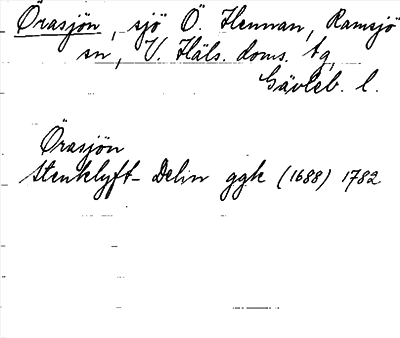 Örasjön, sjö Ö. Hennan, Ramsjö
sn, V. Häls. doms. tg,
Gävleb. l.
Örasjön
Stenklyft- Delin ggk (1688) 1782